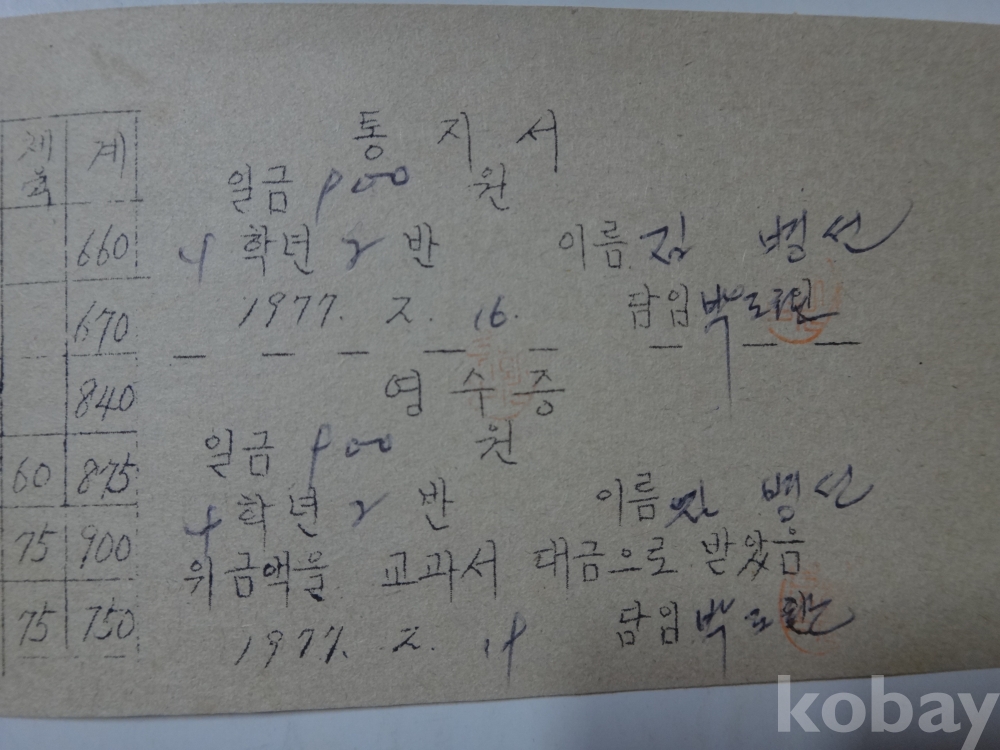 체육 계
660
670
840
60 875
75 900
75 750
통 지 서
일금 900 원
학년 2 반 이름 김 병선
1977. 2. 16. 담임 박
영 수 증
일금 900 원
학년 2 반 이름 김 병선
위 금액을 교과서 대금으로 받았음
1977. 2. 담임 박
kobay